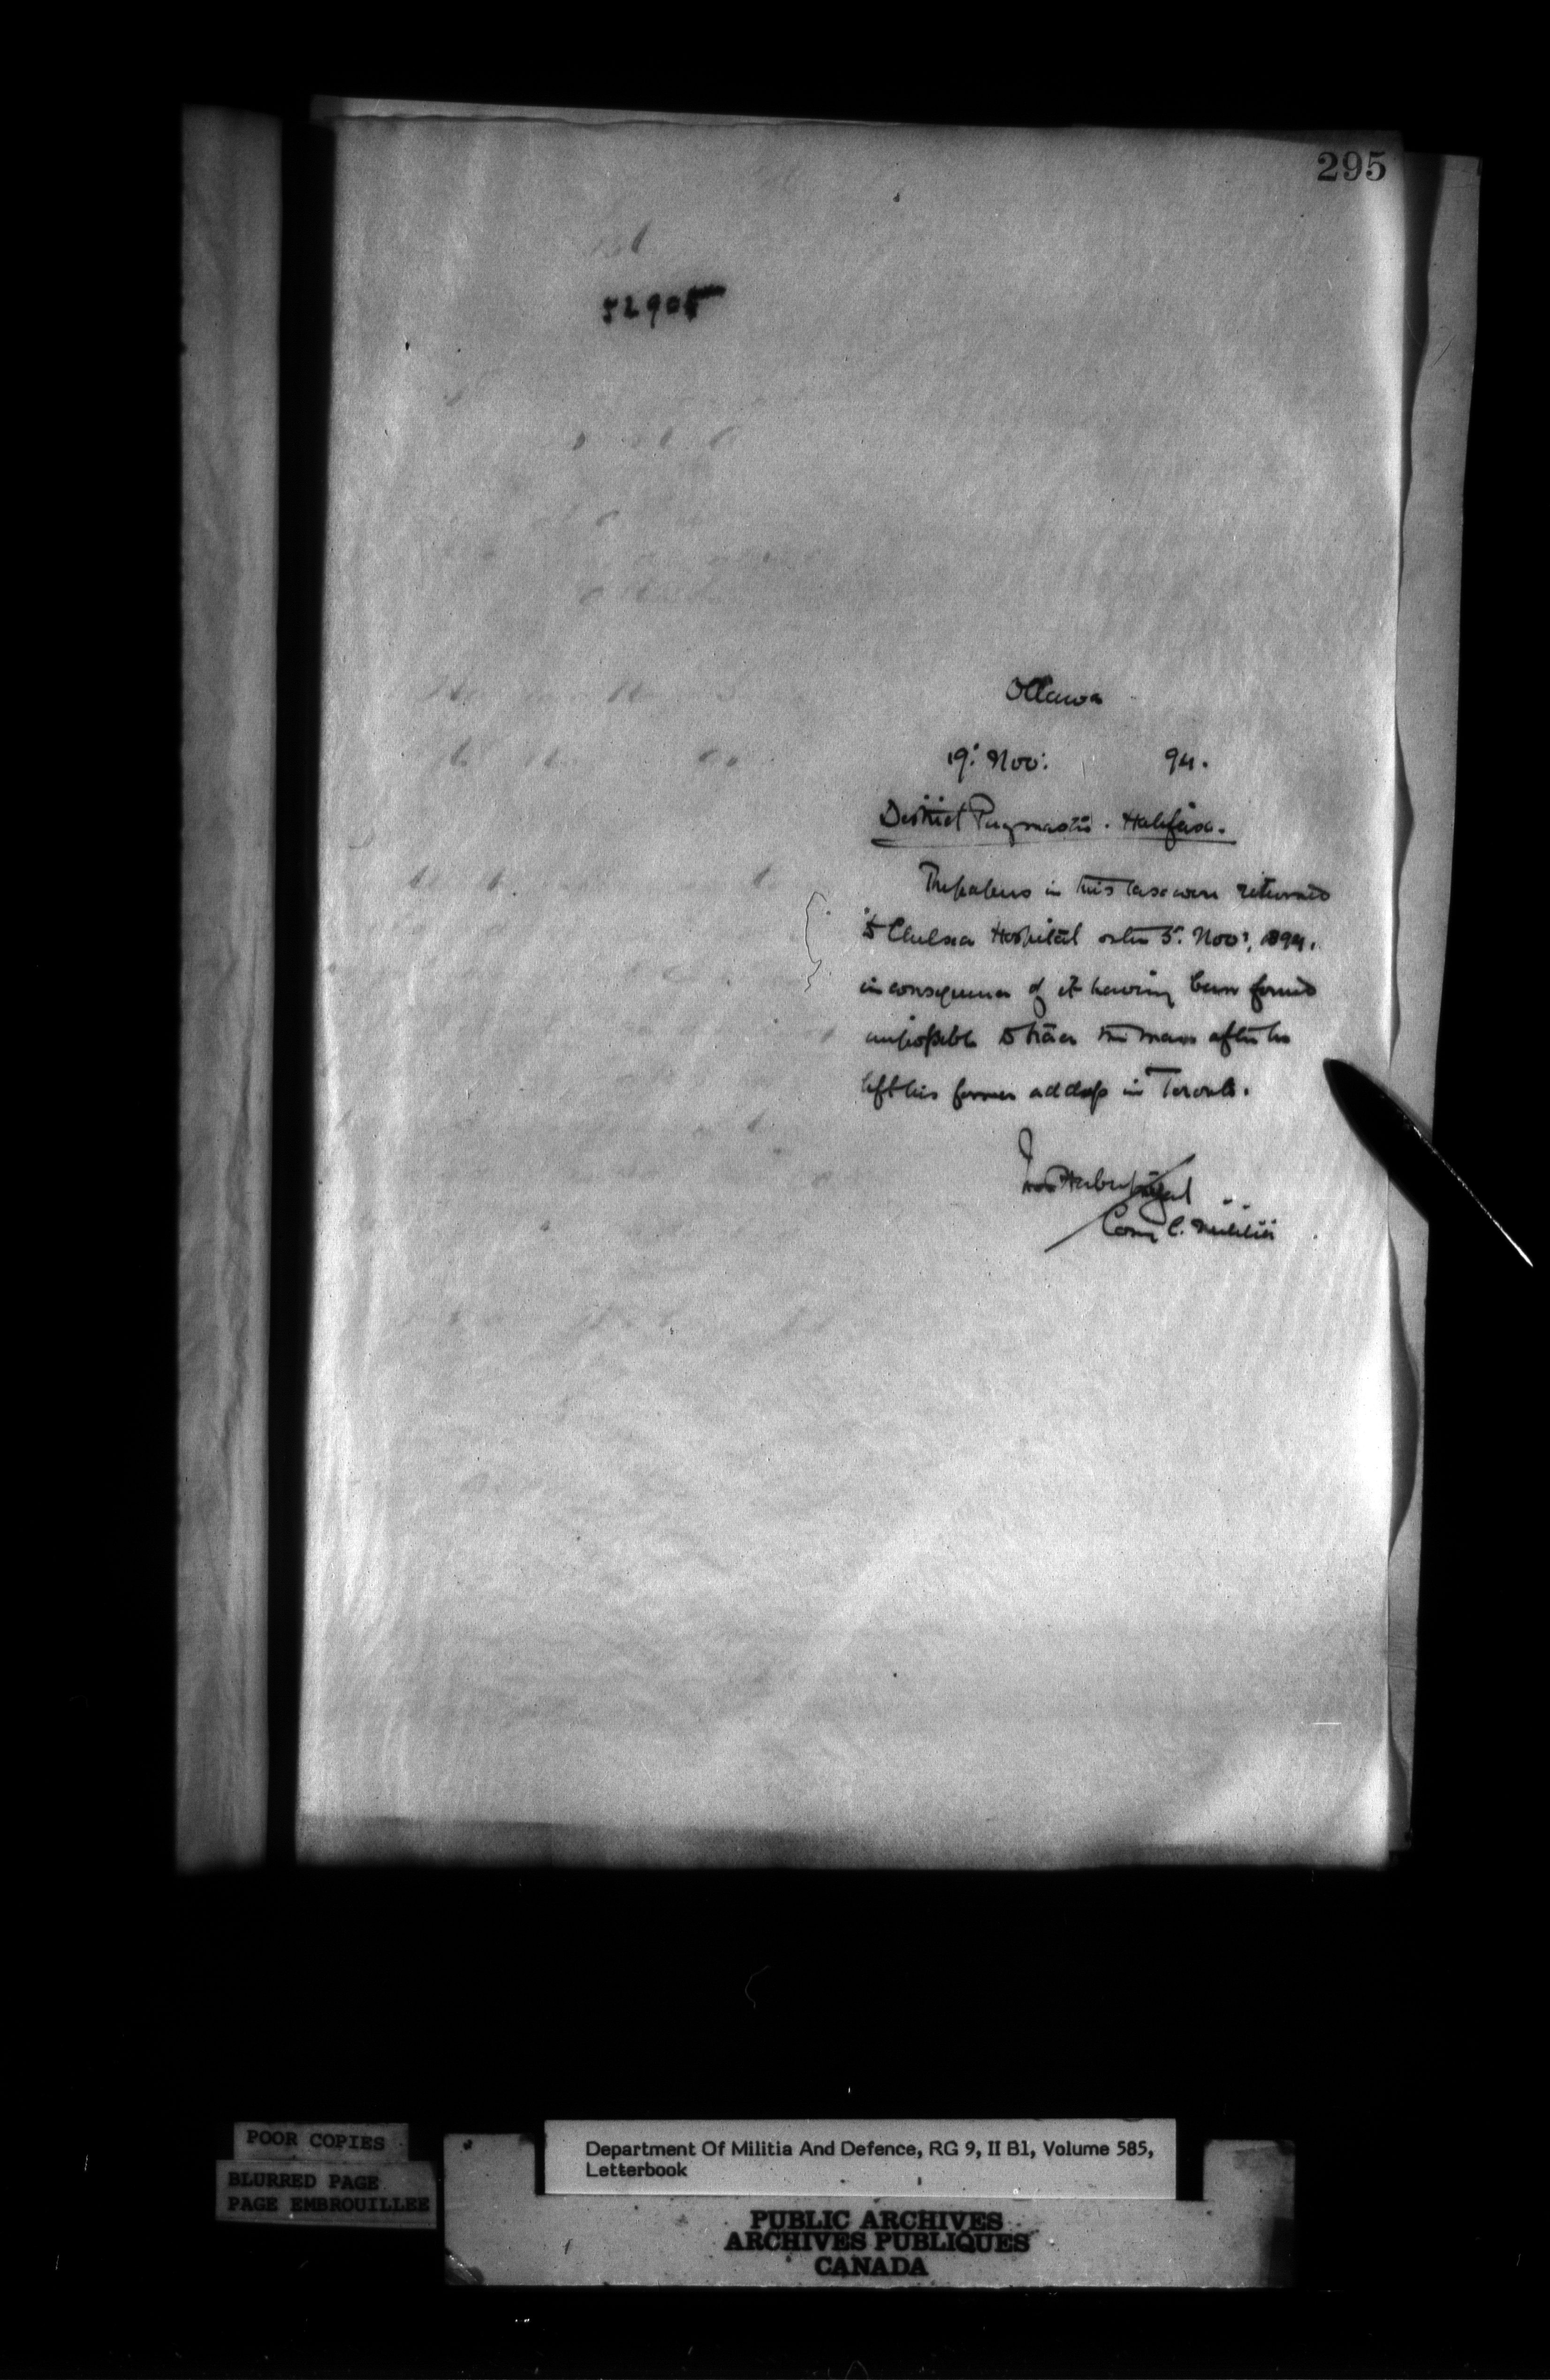 295
52905
Ottawa
19: Nov: 94.
District Paymaster. Halifax.
The papers in this case were returned
to Chelsea Hospital on the 3: Nov:, 1894,
in consequence of it having been found
impossible to trace the man after he
left his former address in Toronto.
POOR COPIES
BLURRED PAGE
PAGE EMBROUILLEE
Department Of Militia And Defence, RG 9, II B1, Volume 585,
Letterbook
PUBLIC ARCHIVES
ARCHIVES PUBLIQUES
CANADA